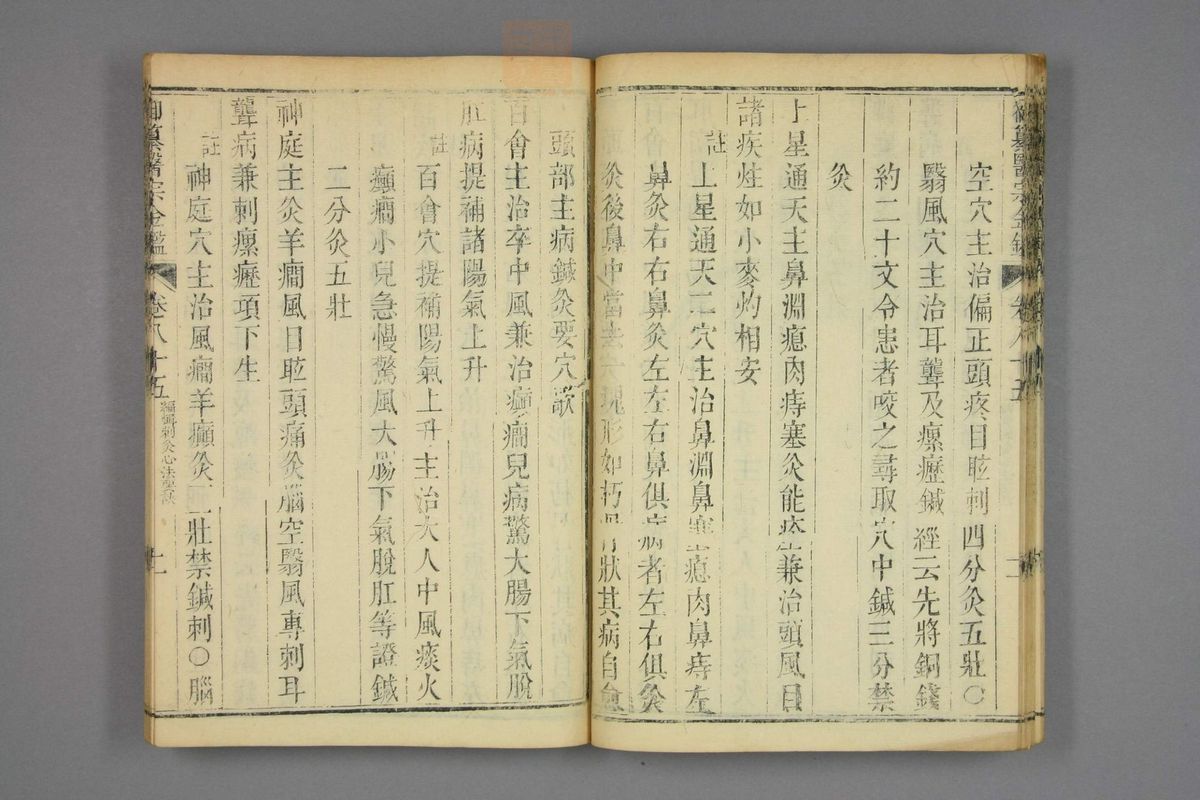 空穴主治偏正頭疼目眩刺四分灸五壯〇
翳風穴主治耳聾及瘰癧鍼經云先將銅錢
約二十文令患者咬之尋取穴中鍼三分禁
灸
上星通天主鼻淵瘜肉痔塞灸能痊兼治頭風目
諸疾炷如小麥灼相安
註
上星通天二穴主治鼻淵鼻塞瘜肉鼻痔左
鼻灸右右鼻灸左左右鼻俱病者左右俱灸
灸後鼻中當去一塊形如朽骨狀其病自愈
頭部主病鍼灸要穴歌
百會主治卒中風兼治癲癇兒病驚大腸下氣脫
肛病提補諸陽氣上升
註
百會穴提補陽氣上升主治大人中風痰火
癲癇小兒急慢驚風大腸下氣脫肛等證鍼
二分灸五壯
神庭主灸羊癇風目眩頭痛灸腦空翳風專刺耳
聾病兼刺瘰癧項下生
註
神庭穴主治風癇羊癲灸三壯禁鍼刺〇腦
御纂醫宗金鑑
卷八十五
編輯刺灸心法要訣
十一
御纂醫宗金鑑
卷八十五